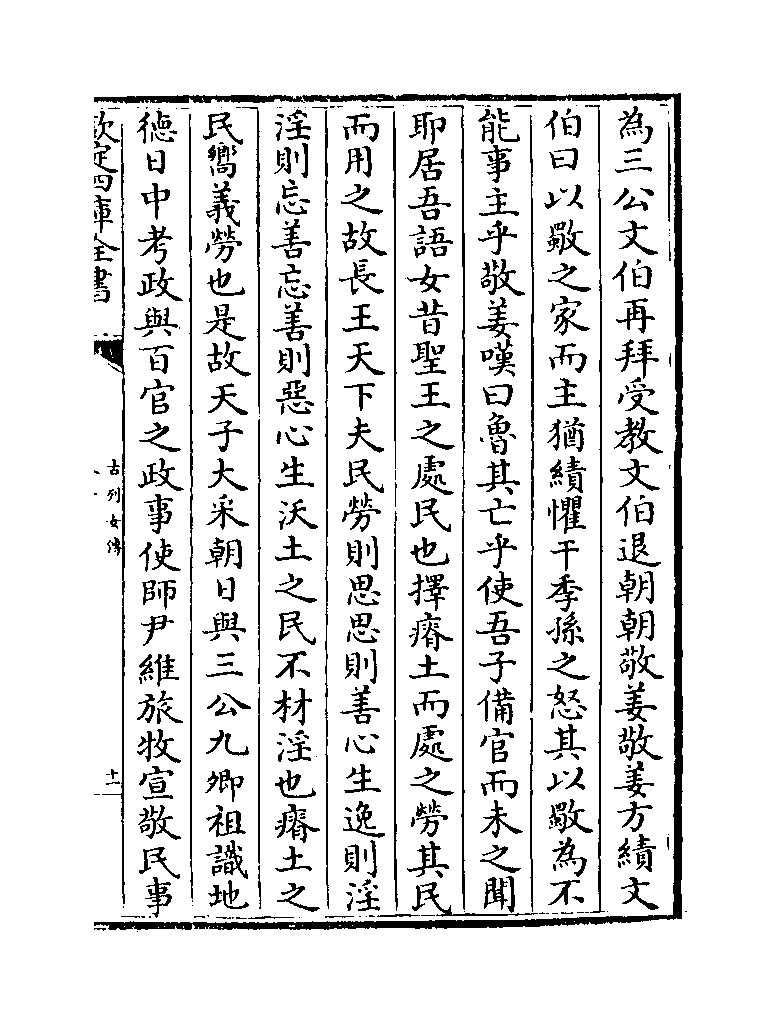 為三公文伯再拜受教文伯退朝朝敬姜敬姜方績文
伯曰以歜之家而主猶績懼干季孫之怒其以歜為不
能事主乎敬姜嘆曰魯其亡乎使吾子備官而未之聞
耶居吾語女昔聖王之處民也擇瘠土而處之勞其民
而用之故長王天下夫民勞則思思則善心生逸則淫
淫則忘善忘善則惡心生沃土之民不材淫也瘠土之
民嚮義勞也是故天子大采朝日與三公九卿祖識地
德日中考政與百官之政事使師尹維旅牧宣敬民事
欽定四庫全書
古列女傳
十一